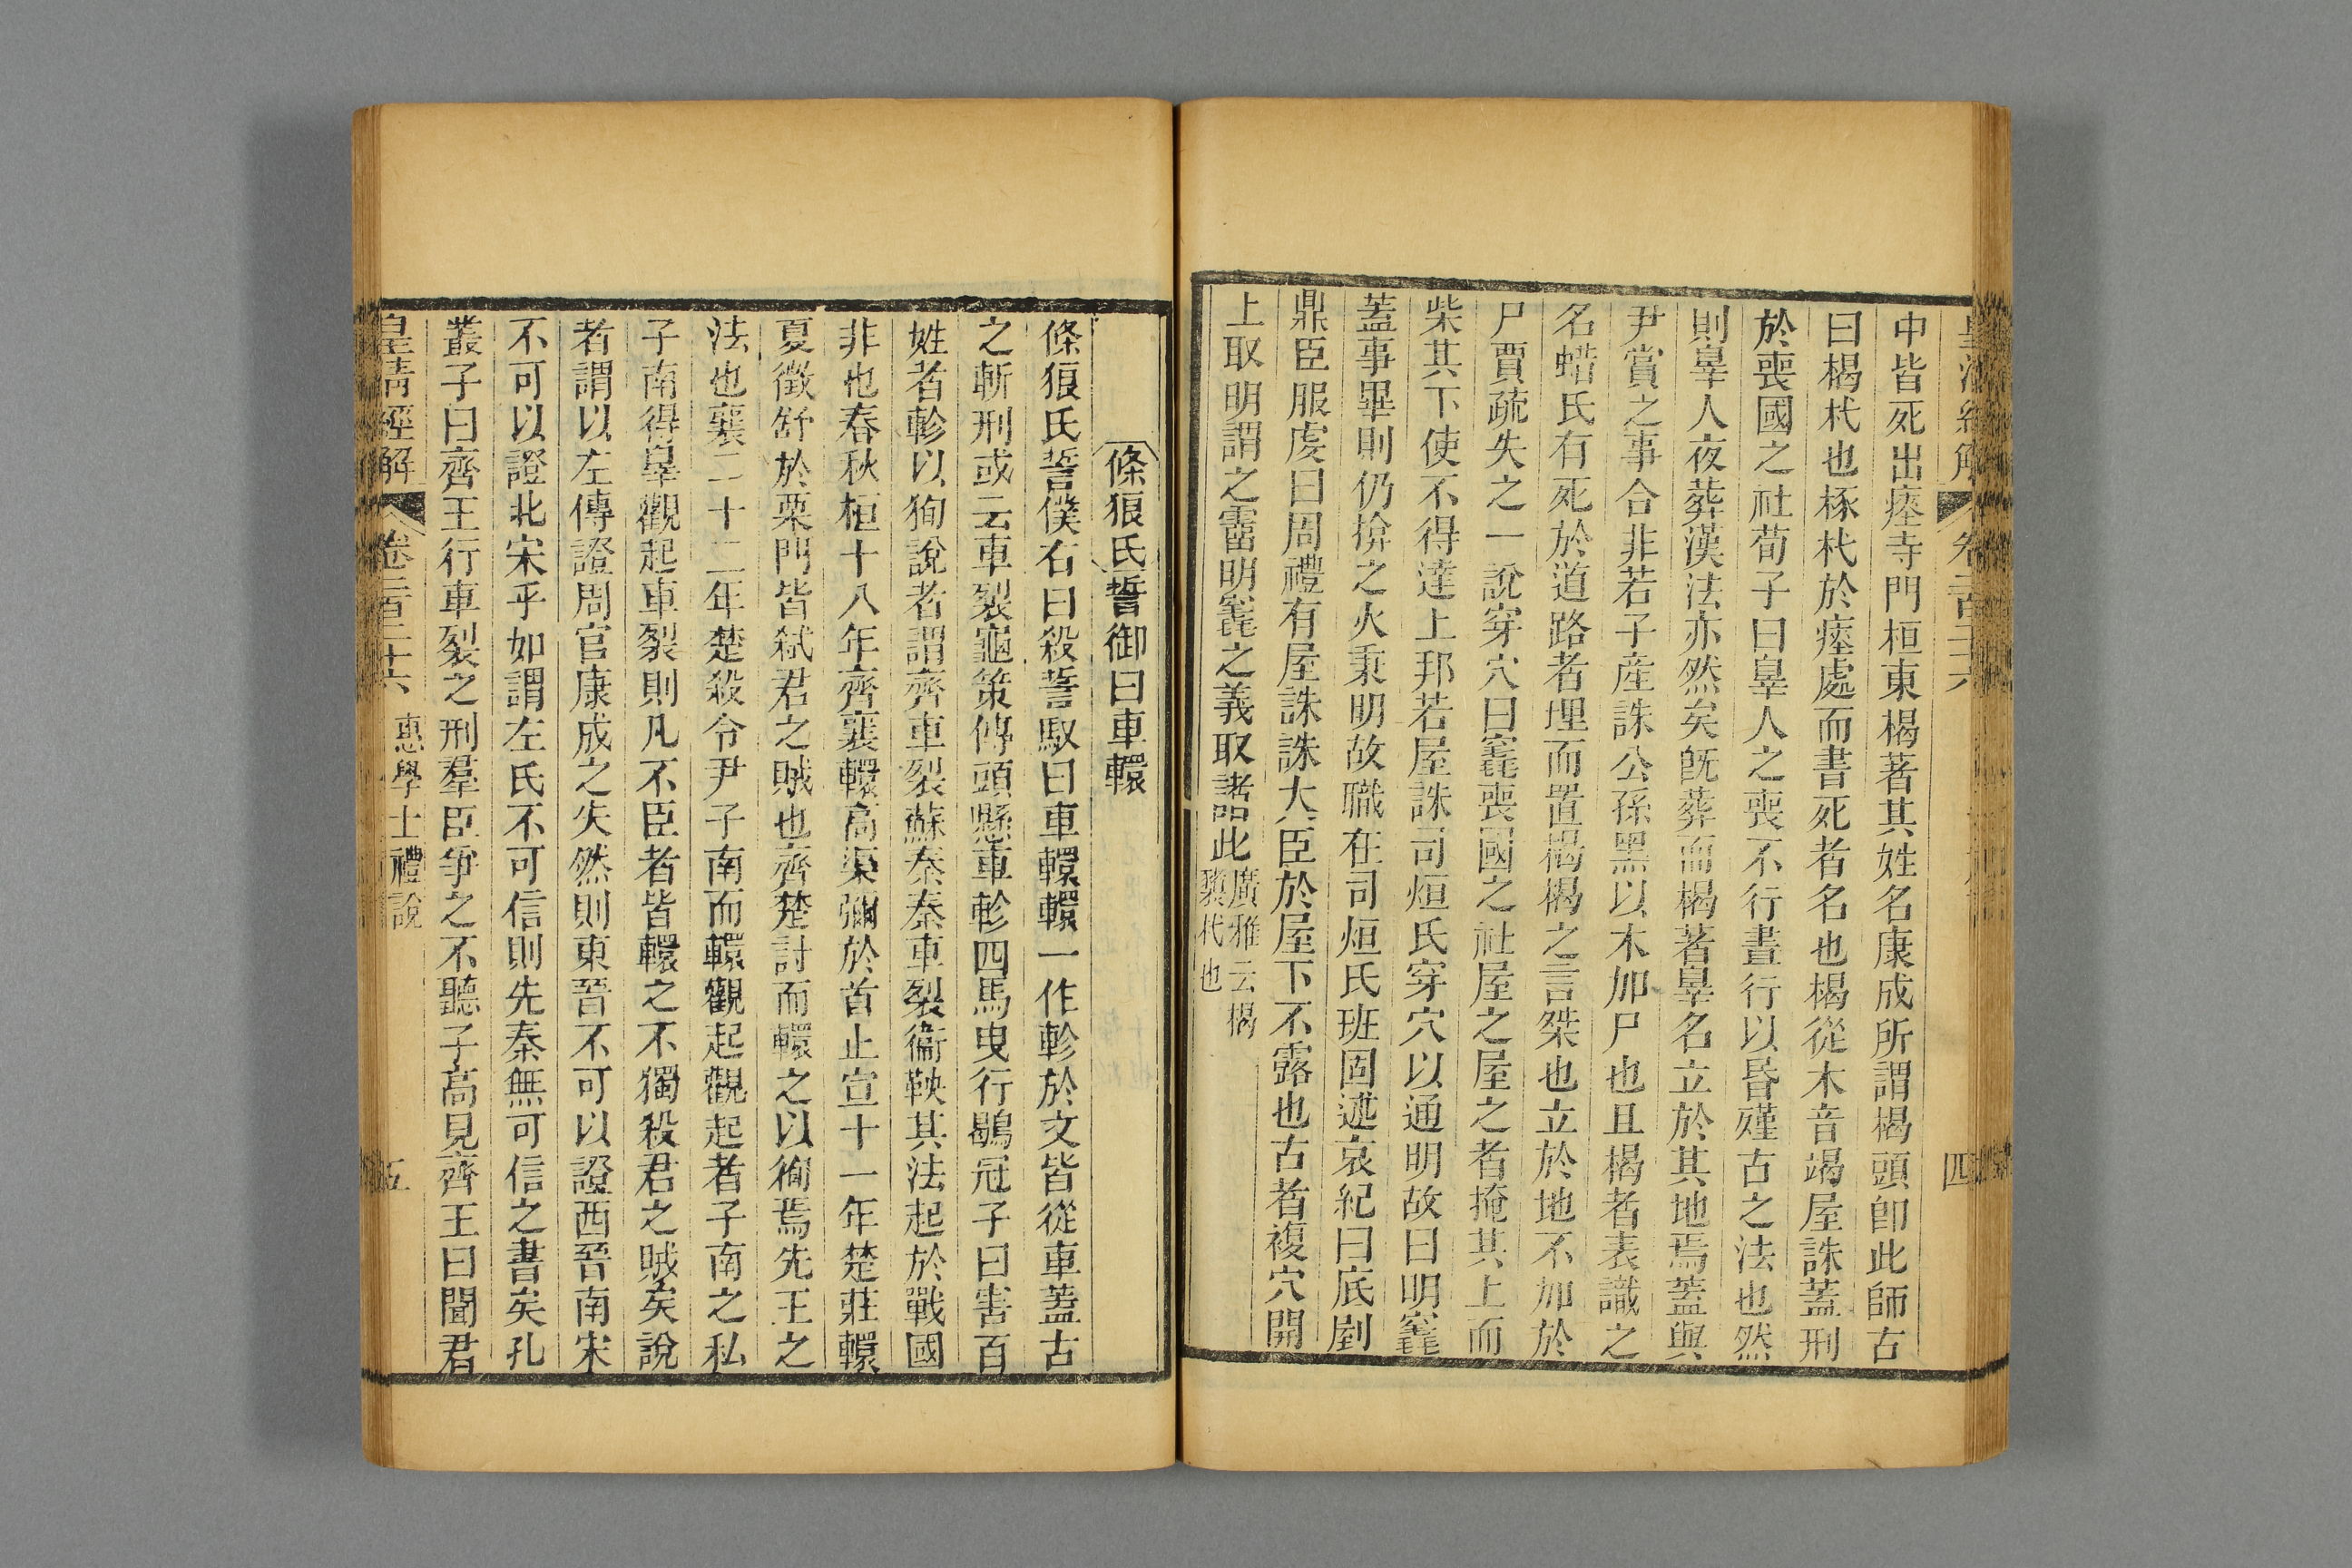 中皆死出瘞寺門桓東楬著其姓名康成所謂楬頭卽此師古
曰楬杙也椓杙於瘞處而書死者名也楬從木音竭屋誅蓋刑
於喪國之社荀子曰辠人之喪不行晝行以昏殣古之法也然
則辠人夜葬漢法亦然矣旣葬而楬著辠名立於其地焉蓋與
尹賞之事合非若子產誅公孫黑以木加尸也且楬者表識之
名蜡氏有死於道路者埋而置楬楬之言桀也立於地不加於
尸賈疏失之一說穿穴曰竁喪國之社屋之屋之者掩其上而
柴其下使不得達上邦若屋誅司烜氏穿穴以通明故曰明竁
蓋事畢則仍揜之火秉明故職在司烜氏班固述哀紀曰底剭
鼎臣服虔曰周禮有屋誅誅大臣於屋下不露也古者複穴開
上取明謂之霤明竁之義取諸此廣雅云楬
櫫杙也
四
條狼氏誓御曰車轘
條狼氏誓僕右曰殺誓馭曰車轘轘一作軫於文皆從車蓋古
之斬刑或云車裂龜策傳頭懸車軫四馬曳行鶡冠子曰害百
姓者軫以狥說者謂齊車裂蘇秦秦車裂衞鞅其法起於戰國
非也春秋桓十八年齊襄轘高渠彌於首止宣十一年楚莊轘
夏徵舒於栗門皆弑君之賊也齊楚討而轘之以徇焉先王之
法也襄二十二年楚殺令尹子南而轘觀起觀起者子南之私
子南得辠觀起車裂則凡不臣者皆轘之不獨殺君之賊矣說
者謂以左傳證周官康成之失然則東晉不可以證西晉南宋
不可以證北宋乎如謂左氏不可信則先秦無可信之書矣孔
叢子曰齊王行車裂之刑羣臣爭之不聽子高見齊王曰聞君
皇清經解 卷二百二十六 惠學士禮說 五